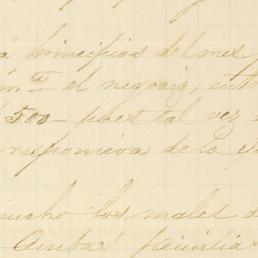 a principios del mes
el negocio, entr
500 pues tal vez
responsiva de lo q
mucho los males d
Ambas familias